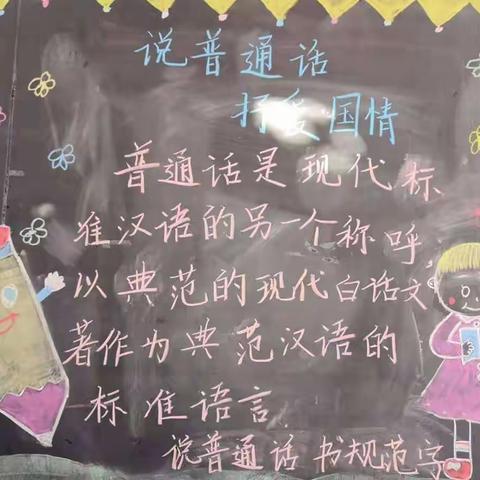 说普通话
抒爱国情
普通话是现代标
准汉语的另一个称呼,
以典范的现代白话文
著作为典范汉语的
标准语言
说普通话 书规范字